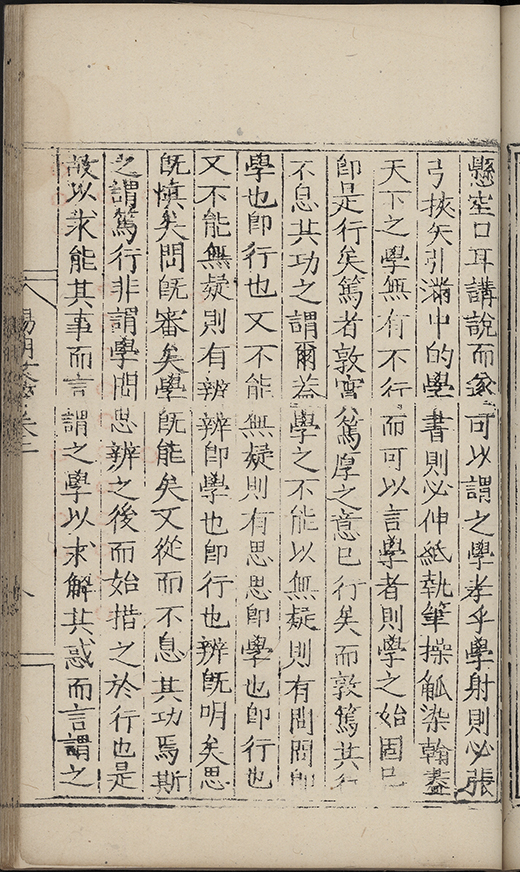 懸空口耳講說而遂可以謂之學孝乎學射則必張
弓挾矢引滿中的學書則必伸紙執筆操觚染翰盡
天下之學無有不行而可以言學者則學之始固已
即是行矣篤者敦實篤厚之意已行矣而敦篤其行
不息其功之謂爾盖學之不能以無疑則有問問即
學也即行也又不能無疑則有思思即學也即行也
又不能無疑則有辨辨即學也即行也辨既明矣思
既慎矣問既審矣學既能矣又從而不息其功焉斯
之謂篤行非謂學問思辨之後而始措之於行也是
故以求能其事而言謂之學以求解其惑而言謂之
陽明文卷二